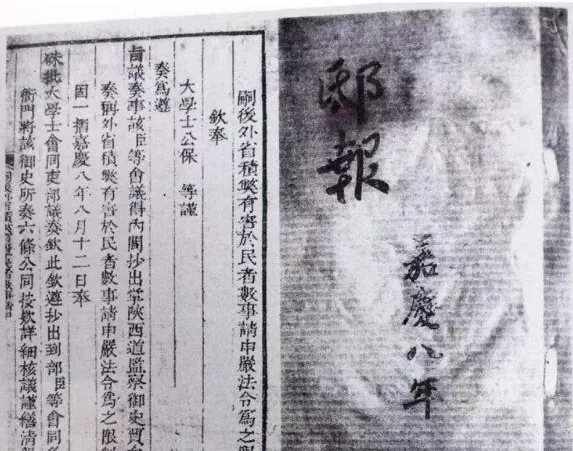 邸報
嘉慶八年
嗣後外省積獘有害於民者數事請申嚴法令爲之限
欽奉
大學士公保 等謹
奏爲遵
旨議奏事該臣等會議得內閣抄出掌陝西道監察御史賈
奏稱外省積獘有害於民者數事請申嚴法令爲之限制
因一摺嘉慶八年八月十二日奉
硃批大學士會同吏部議奏欽此欽遵抄出到部臣等會同
衙門將該御史所奏六條公同按款詳細核議謹繕清